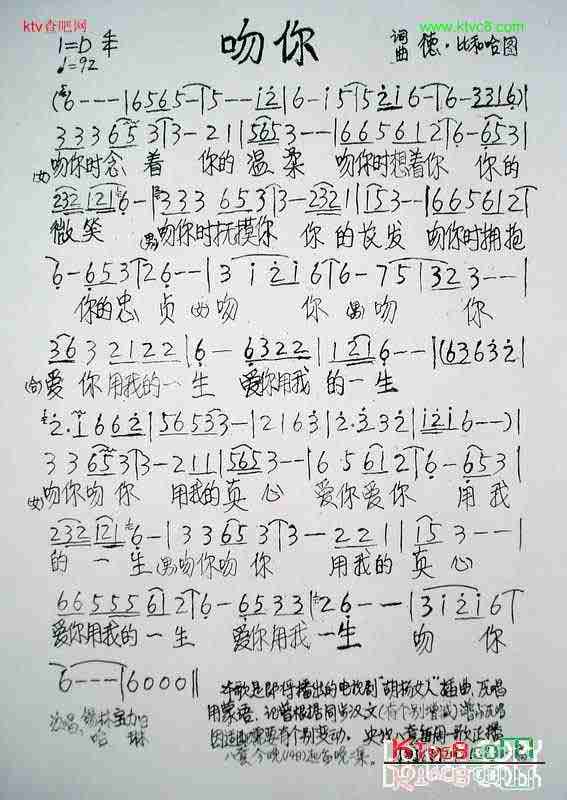 ktv吉吧网
www.ktvc8.com
吻你
1=D 4/4
♩=92
词曲 德·比和哈图
(6---|6565-|5---i2|6-i5|52i6-|6-3316)|
333653|3-21|5653--|665612|6-653|
(女)吻你时念着 你的温柔 吻你时想着你 你的
2321216-|333653|3-2321|153-|665612|
微笑 (男)吻你时抚摸你 你的长发 吻你时拥抱
6-653|26--|3i2i6|6-75|323--|
你的忠贞 (女)吻 你 (男)吻 你
3632122|6-6322|1216--|(63632|
(合)爱你用我的一生 爱你用我的一生
2·i662|56533-|2163|2·332|i2i6--)|
33653|3-211|5653--|65612|6-653|
(女)吻你吻你 用我的真心 爱你爱你 用我
2321216-|33653|3-221|153--|
的一生 (男)吻你吻你 用我的真心
66555612|6-6533|26--|3i2i6|
爱你用我的一生 爱你用我一生 吻 你
6---|6000‖
本歌是即将播出的电视剧"胡杨女人"插曲,原唱
用蒙语,记谱根据同步汉文(有个别增减)谱与原唱
演唱:锡林宝力日
哈 琳
Ktvc8.com